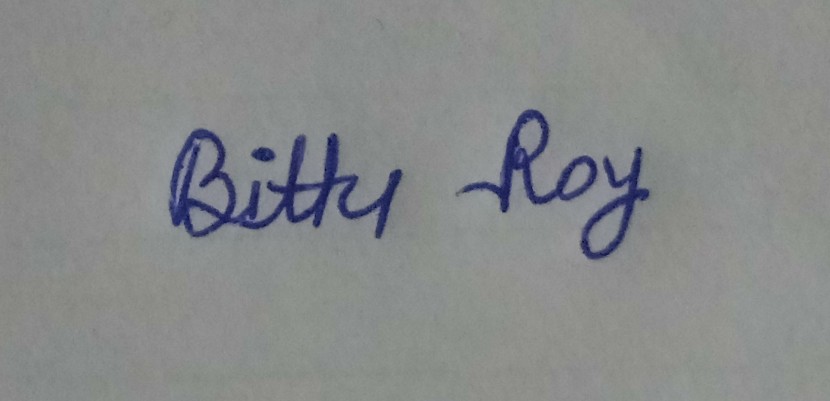 Bittu Roy